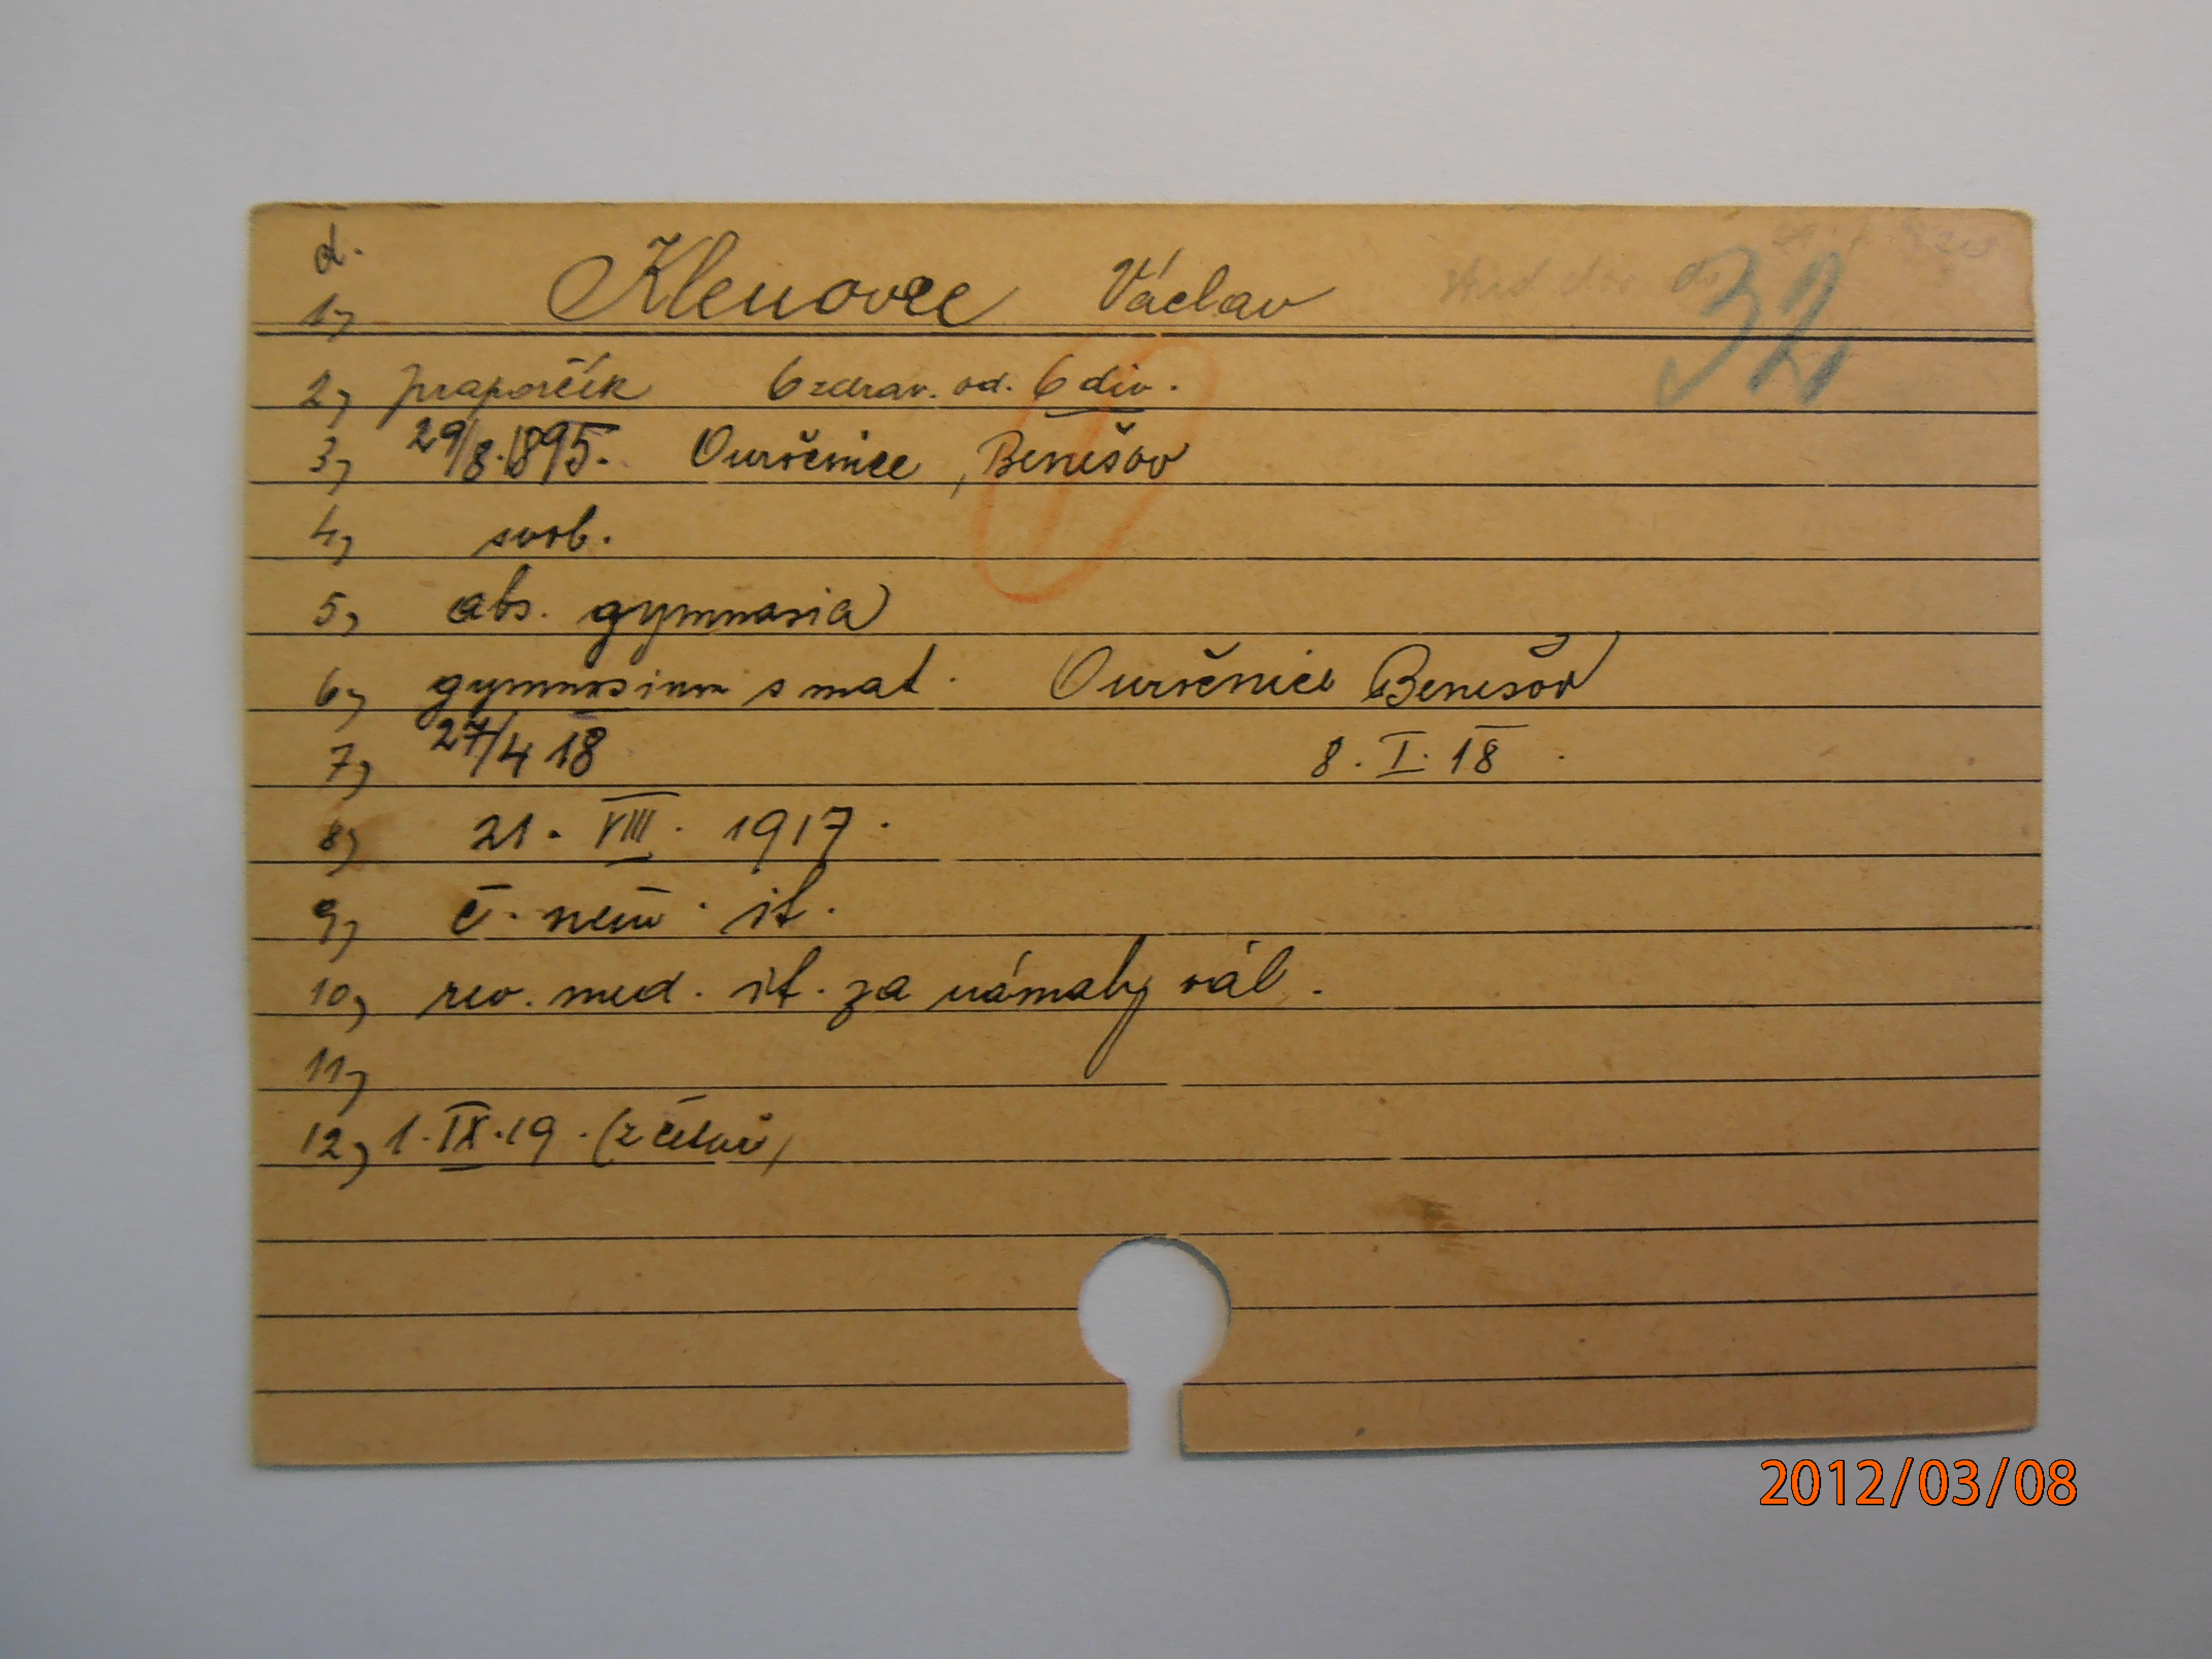 d.
1, Klenovec Václav 32
2, praporčík 6 zdrav. od. 6 div.
3, 29/8.1895. Ouročnice, Benešov
4, svob.
5, abs. gymnasia
6, gymnasium s mat. Ouročnice Benešov
7, 27/4 18 8. I. 18.
8, 21. VIII. 1917.
9, č. něm. it.
10, rev. med. it. za námahy vál.
11,
12, 1. IX. 19.
2012/03/08